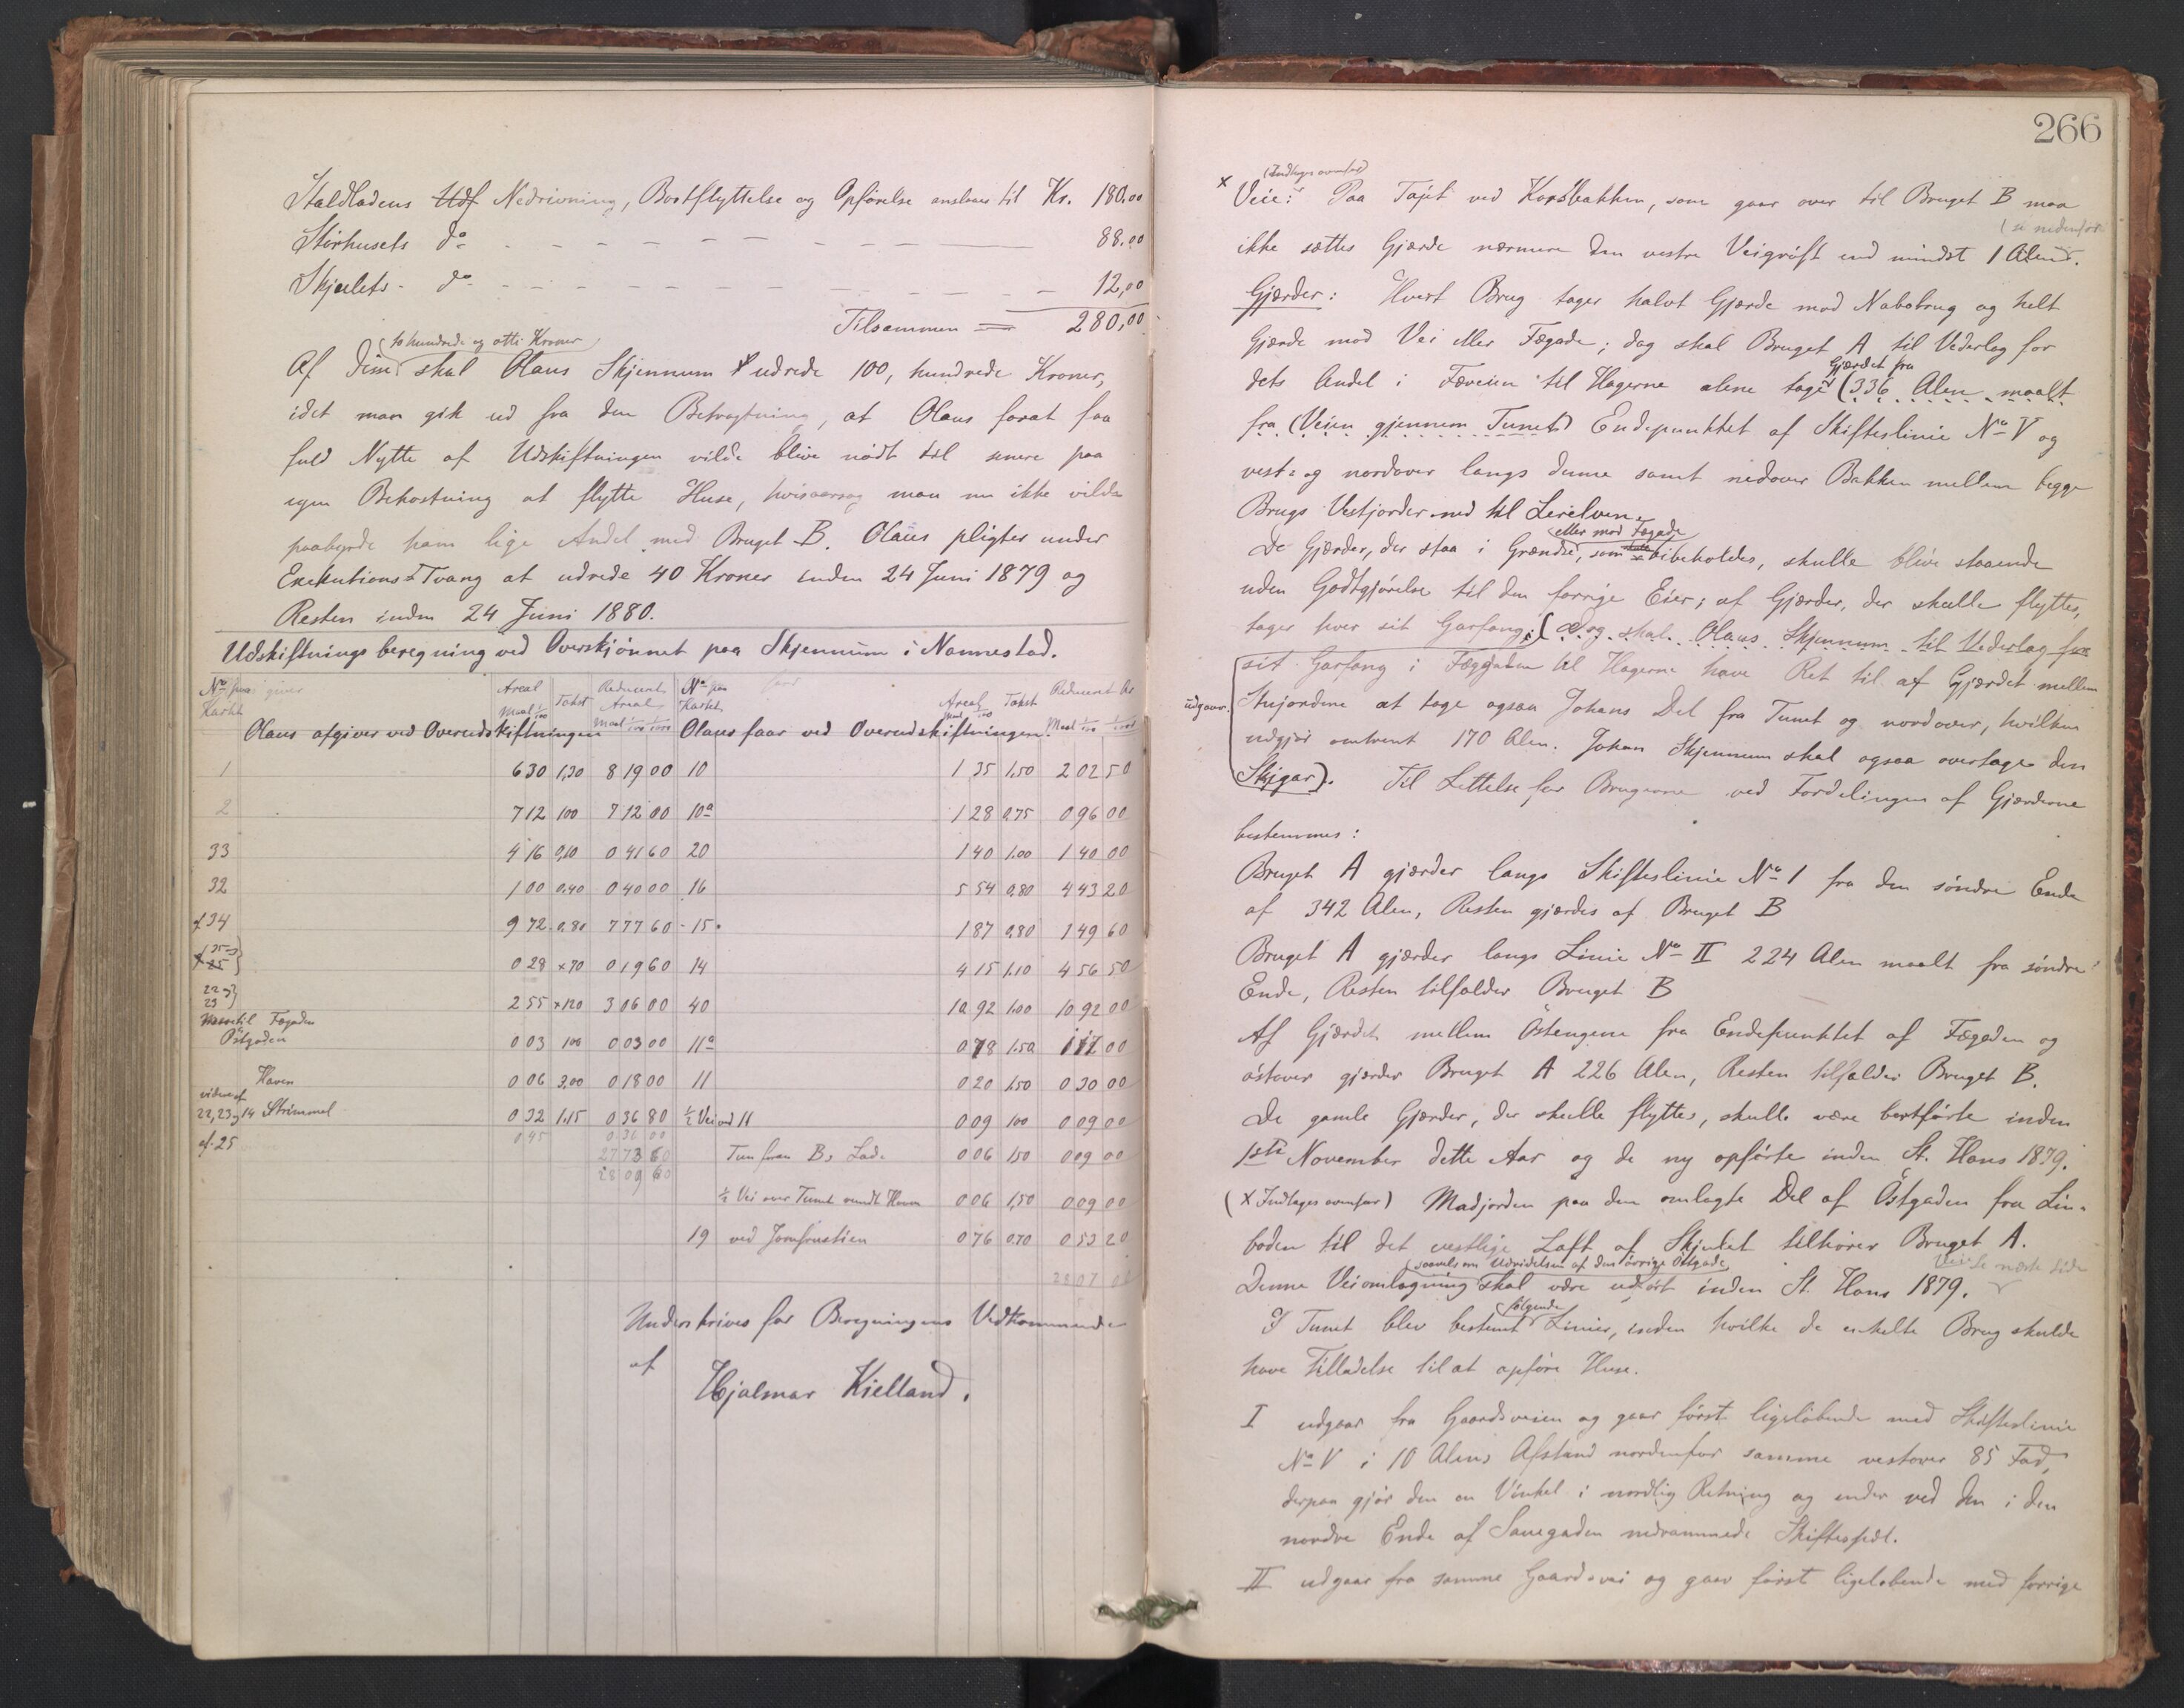 Staldladens Udf Nedrivning, Bortflyttelse og Opførelse ansloes til Kr. 180.00
Størhusets do - - - - 88.00
Skjulets - do - - - - 12,00
Tilsammen = 280,00
(to hundrede og otti Kroner
Af disse skal Olaus Skjennum udrede 100, hundrede Kroner,
idet man gik ud fra den Betragtning, at Olaus forat faa
fuld Nytte af Udskiftningen vilde blive nødt til senere paa
egen Bekostning at flytte Huse, hvisaarsag man nu ikke vilde
paabyrde ham lige Andel med Bruget B. Olaus pligter under
Exekutions=Tvang at udrede 40 Kroner inden 24 Juni 1879 og
Resten inden 24 Juni 1880.
Udskiftnings beregning ved Overskjønnet paa Skjennum i Nannestad.
No paa Kartet giver Areal Maal 1/100 Takst Reduceret Areal Maal 1/100 1/1000 No paa Kartet faar Areal Maal 1/100 Takst Reduceret Ar Maal 1/100 1/1000
Olaus afgiver ved Overudskiftningen Olaus faar ved Overudskiftningen.
1 6 30 1,30 8 19 00 10 1 35 1.50 2 02 50
2 7 12 100 7 12 00 10a 1 28 0.75 0 96 00
33 4 16 0,10 0 41 60 20 1 40 1.00 1 40 00
32 1 00 0.40 0 40 00 16 5 54 0,80 4 43 20
af 34 9 72 0.80 7 77 60 15 1 87 0,80 1 49 60
0 28 x70 0 19 60 14 4 15 1.10 4 56 50
22 og 23} 2 55 x120 3 06 00 40 10 92 1.00 10 92 00
til Fægaden
Østgaden 0 03 100 0 03 00 11a 0 78 1.50 1 17 00
Haven 0 06 3,00 0 18 00 11 0 20 1.50 0 30 00
22, 23 og 14 Strimmel 0 32 1.15 0 36 80 1/2 Vei ved 11 0 09 100 0 09 00
af 25 0 45 0 36 00
27 73 60 Tun foran Bs Lade 0 06 1.50 0 09 00
28 09 60
1/2 Vei over Tunet rundt Haven 0 06 1,50 0 09 00
19 ved Jomfrustien 0 76 0.70 0 53 20
28 07 00
Underskrives for Beregningens Vedkommende
af
Hjalmar Kielland.
266
(Indtages ovenfor)
x Veie: Paa Tøjet ved Korsbakken, som gaar over til Bruget B maa
(se nedenfor
ikke sættes Gjærde nærmere den vestre Veigrøft end mindst 1 Alen.
Gjærder: Hvert Brug tager halvt Gjærde mod Nabobrug og helt
Gjærde mod Vei eller Fægade; dog skal Bruget A til Vederlag for
Gjærdet fra
dets Andel i Fæveien til Hagerne alene tage (336 Alen maalt
fra (Veien gjennem Tunet) Endepunktet af Skifteslinie No V og
vest= og nordover langs denne samt nedover Bakken mellem begge
Brugs Vestjorder ned til Lerelven.
eller mod Fægade
De Gjærder, der staa i Grændse, som bibeholdes, skulle blive staaende
uden Godtgjørelse til den forrige Eier; af Gjærder, der skulle flyttes,
tager hver sit Garfang; (Dog skal Olaus Skjennum til Vederlag for
sit Garfang i Fægaden til Hagerne have Ret til af Gjærdet mellem
udgaar. at tage ogsaa Johans Del fra Tunet og nordover, hvilken
udgjør omtrent 170 Alen. Johan Skjennum skal ogsaa overtage den
Skigar). Til Lettelse for Brugerne ved Fordelingen af Gjærderne
bestemmes:
Bruget A gjærder langs Skifteslinie No 1 fra den søndre Ende
af 342 Alen, Resten gjærdes af Bruget B
Bruget A gjærder langs Linie No II 224 Alen maalt fra søndre
Ende, Resten tilfalder Bruget B
Af Gjærdet mellem Østengene fra Endepunktet af Fægaden og
østover gjærder Bruget A 226 Alen, Resten tilfalder Bruget B.
De gamle Gjærder, der skulle flyttes, skulle være bortførte inden
1ste November dette Aar og de ny opførte inden St. Hans 1879.
(x Indtages ovenfor) Madjorden paa den omlagte Del af Østgaden fra Lin-
boden til det vestlige Laft af Skjulet tilhører Bruget A.
(saavelsom Udvidelsen af den øvrige Østgade Vei se næste Side
Denne Veiomlægning skal være udført inden St. Hans 1879.
følgende
I Tunet blev bestemt Linier, inden hvilke de enkelte Brug skulde
have Tilladelse til at opføre Huse.
I udgaar fra Gaardsveien og gaar først ligeløbende med Skifteslinie
No V i 10 Alens Afstand nordenfor samme vestover 85 Fod,
derpaa gjør den en Vinkel i nordlig Retning og ender ved den i den
nordre Ende af Sauegaden nedrammede Skiftespæl.
II udgaar fra samme Gaardsvei og gaar først ligeløbende med forrige